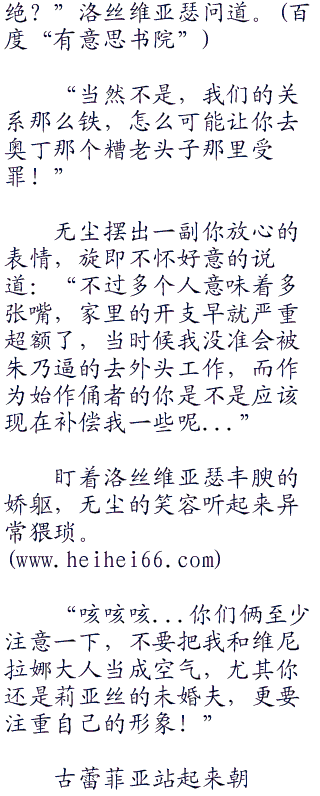 绝？”洛丝维亚瑟问道。(百
度“有意思书院”)
“当然不是，我们的关
系那么铁，怎么可能让你去
奥丁那个糟老头子那里受
罪！”
无尘摆出一副你放心的
表情，旋即不怀好意的说
道：“不过多个人意味着多
张嘴，家里的开支早就严重
超额了，当时候我没准会被
朱乃逼的去外头工作，而作
为始作俑者的你是不是应该
现在补偿我一些呢...”
盯着洛丝维亚瑟丰腴的
娇躯，无尘的笑容听起来异
常猥琐。
(www.heihei66.com)
“咳咳咳...你们俩至少
注意一下，不要把我和维尼
拉娜大人当成空气，尤其你
还是莉亚丝的未婚夫，更要
注重自己的形象！”
古蕾菲亚站起来朝